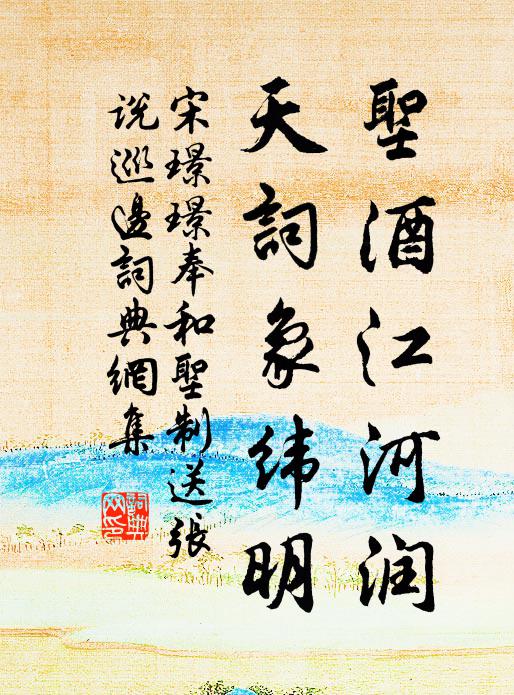 聖酒江河润
天詞象緯明
宋璟璟奉和聖制送張
说巡邊詞典網集
詞典网印